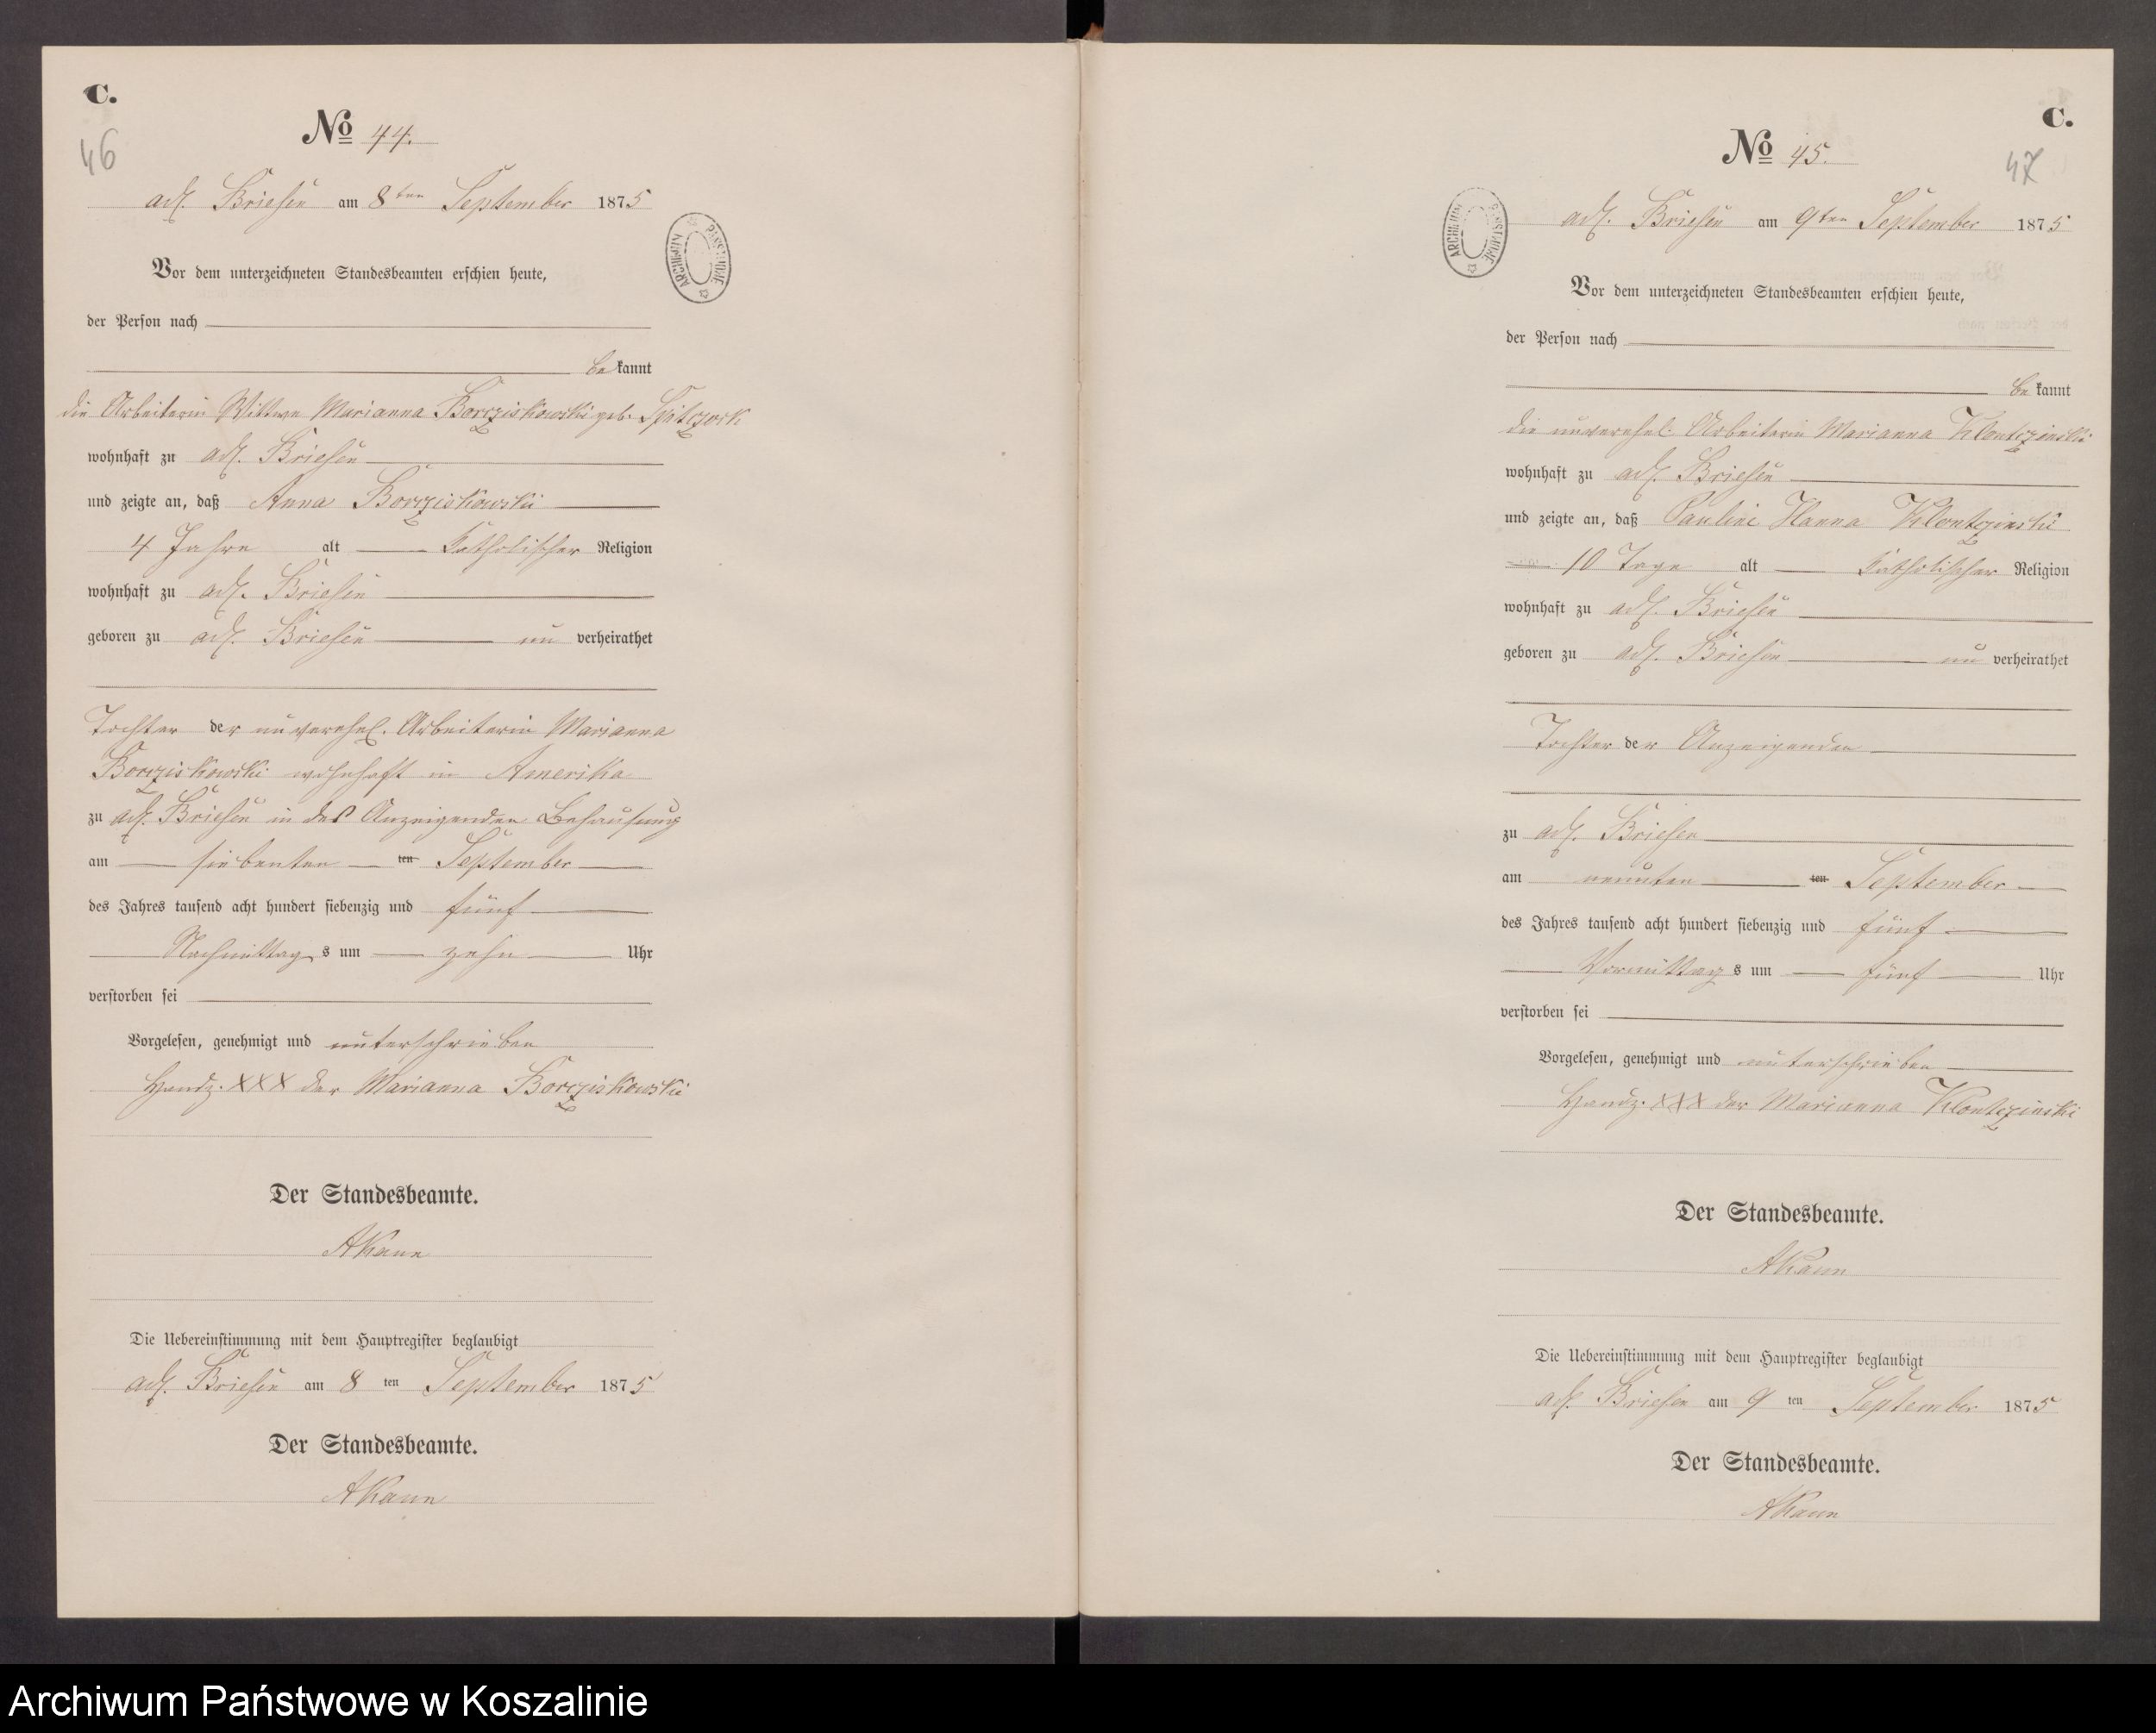 C.
46
No 44.
adl. Briesen am 8ten September 1875
ARCHIWUM PAŃSTWOWE
Vor dem unterzeichneten Standesbeamten erschien heute,
der Person nach
bekannt
die Arbeiterin Wittwe Marianna Borcziskowski geb.
wohnhaft zu adl. Briesen
und zeigte an, daß Anna Borcziskowski
4 Jahre alt Katholischer Religion
wohnhaft zu adl. Briesen
geboren zu adl. Briesen unverheirathet
Tochter der unverehel. Arbeiterin Marianna
Borcziskowski wohnhaft in Amerika
zu adl. Briesen in der Anzeigenden Behausung
am siebenten ten September
des Jahres tausend acht hundert siebenzig und fünf
Nachmittags um zehn Uhr
verstorben sei
Vorgelesen, genehmigt und unterschrieben
Handz. XXX der Marianna Borcziskowski
Der Standesbeamte.
AKann
Die Uebereinstimmung mit dem Hauptregister beglaubigt
adl. Briesen am 8 ten September 1875
Der Standesbeamte.
AKann
C.
47
No 45.
adl. Briesen am 9ten September 1875
ARCHIWUM PAŃSTWOWE
Vor dem unterzeichneten Standesbeamten erschien heute,
der Person nach
bekannt
die unverehel. Arbeiterin Marianna Klontczinski
wohnhaft zu adl. Briesen
und zeigte an, daß Pauline Hanna Klontczinski
10 Tage alt Katholischer Religion
wohnhaft zu adl. Briesen
geboren zu adl. Briesen unverheirathet
Tochter der Anzeigenden
zu adl. Briesen
am neunten ten September
des Jahres tausend acht hundert siebenzig und fünf
Vormittags um fünf Uhr
verstorben sei
Vorgelesen, genehmigt und unterschrieben
Handz. XXX der Marianna Klontczinski
Der Standesbeamte.
AKann
Die Uebereinstimmung mit dem Hauptregister beglaubigt
adl. Briesen am 9 ten September 1875
Der Standesbeamte.
AKann
Archiwum Państwowe w Koszalinie